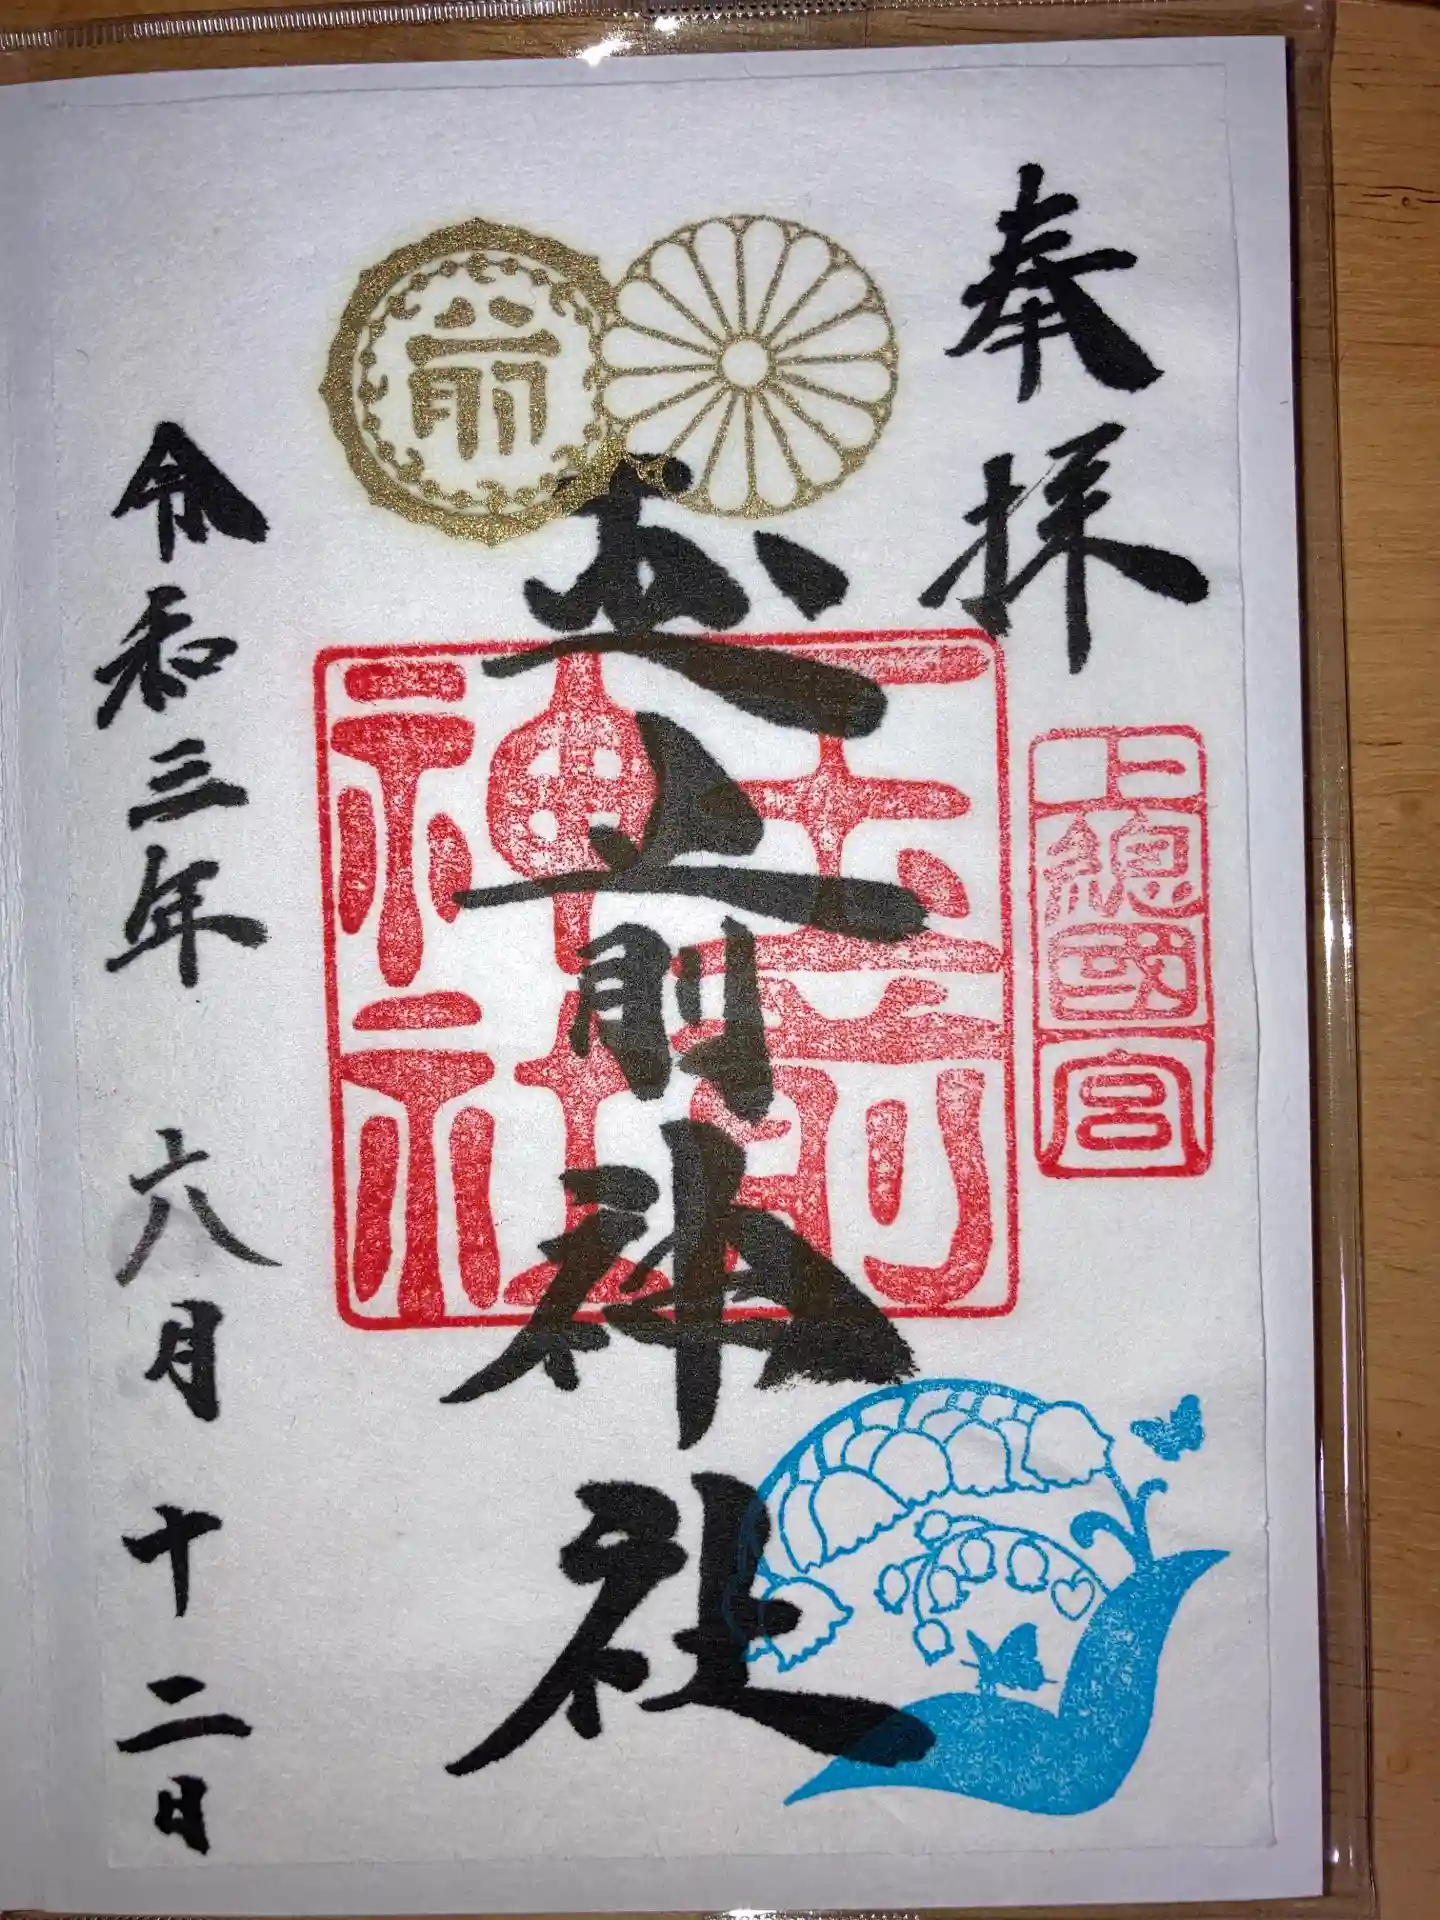 奉拝
上總國一宮
玉前神社
玉前神社
前
令和三年 六月 十二日